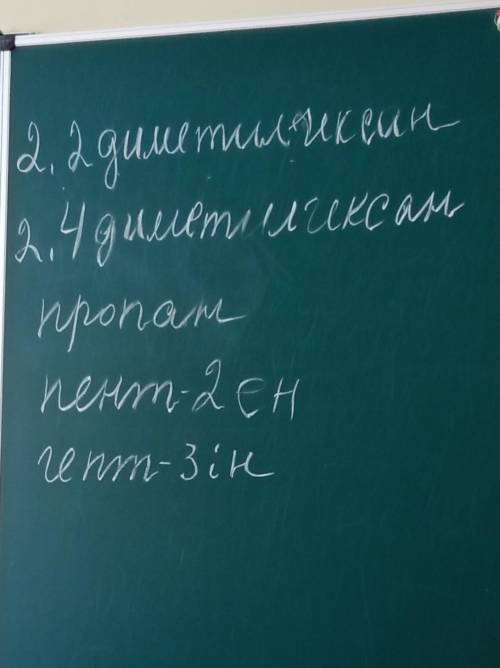 2,2 диметилгексан
2,4 диметилгексан
пропан
пент-2 єн
гепт-3ін